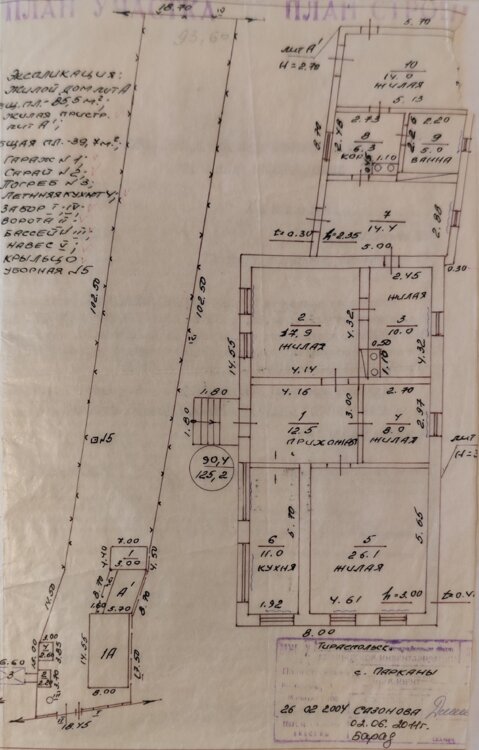 ПЛАН УЧАСТКА
ПЛАН СТРОЕН
18.70
95,60
Экспликация:
жилой дом лит А
общ. пл.-85,5м²;
жилая пристр.
лит А';
общая пл.-39,7м²;
гараж N1;
сарай N2;
погреб N3;
летняя кухня 4;
ворота II;
бассейн III;
навес
крыльцо
уборная N5
102.50
102.50
N5
14.50
4.40
7.00
1
3.00
4.50
А'
8.70
8.70
1.60
5.70
14.55
1А
8.00
3.00
6.60
18.45
5.70
лит А'
H=2.70
10
14.0
жилая
5.13
2.73
2.20
2.48
8
6.3
кор
1.10
9
5.0
ванна
7
14.4
5.00
2.88
h=2.95
t=0.30
0.30
2.45
жилая
2
17.9
жилая
4.32
3
10.0
0.50
1.10
4.32
14.65
4.14
4.16
2.70
1.80
1.80
1
12.5
прихожая
3.00
4
8.0
жилая
2.97
лит
90,4
125,2
6
11.0
кухня
5.70
5
26.1
жилая
5.65
1.92
4.61
h=3.00
8.00
Тираспольск
с. Парканы
26 02 2004 Сазонова
02.06.2011г.
Барад